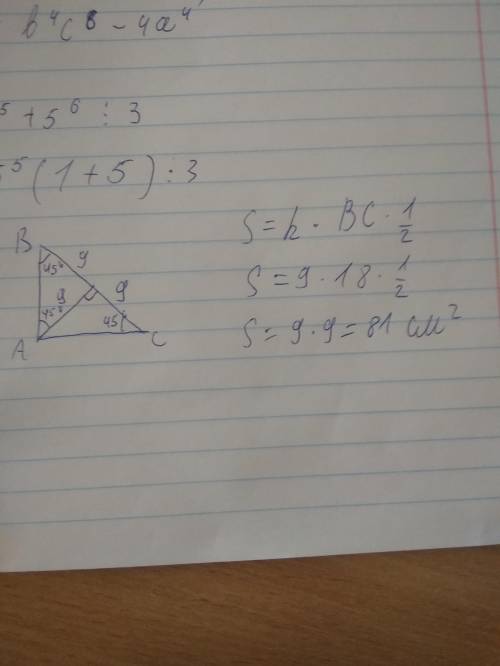 b⁴c⁸ - 4a⁴
⁵ + 5⁶ : 3
5⁵(1+5) : 3
B
45°
9
9
9
45°
45
A
C
S = h · BC · 1/2
S = 9 · 18 · 1/2
S = 9 · 9 = 81 см²